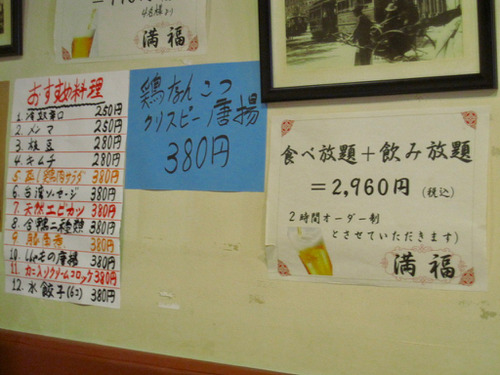 4名様より
満福
おすすめ料理
250円
2. メンマ 250円
3. 枝豆 280円
4. キムチ 280円
380円
6. 台湾ソーセージ 380円
7. 天然エビカツ 380円
380円
380円
唐揚 380円
11. カニ入りクリームコロッケ 380円
12. 水餃子(6コ) 380円
鶏なんこつ
クリスピー唐揚
380円
食べ放題+飲み放題
=2,960円(税込)
2時間オーダー制
とさせていただきます)
満福